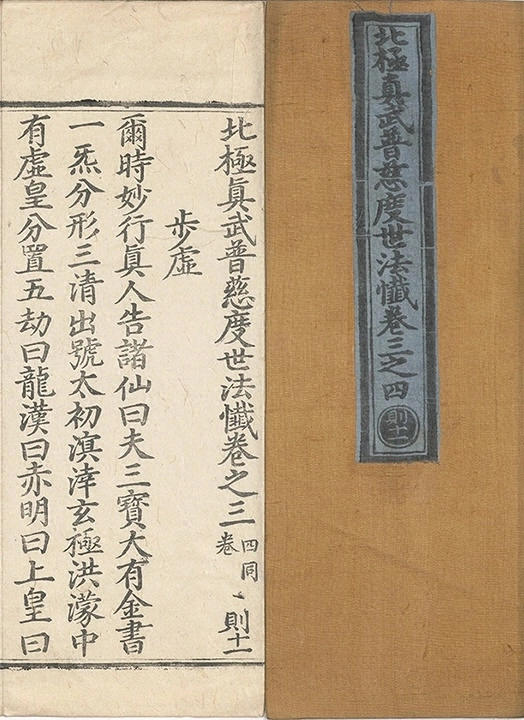 北極真武普慈度世法懺卷三之四
則十一
北極眞武普慈度世法懺卷之三 四同卷 則十一
步虛
爾時妙行眞人告諸仙曰夫三寶大有金書
一炁分形三清出號太初溟涬玄極洪濛中
有虛皇分置五劫曰龍漢曰赤明曰上皇曰